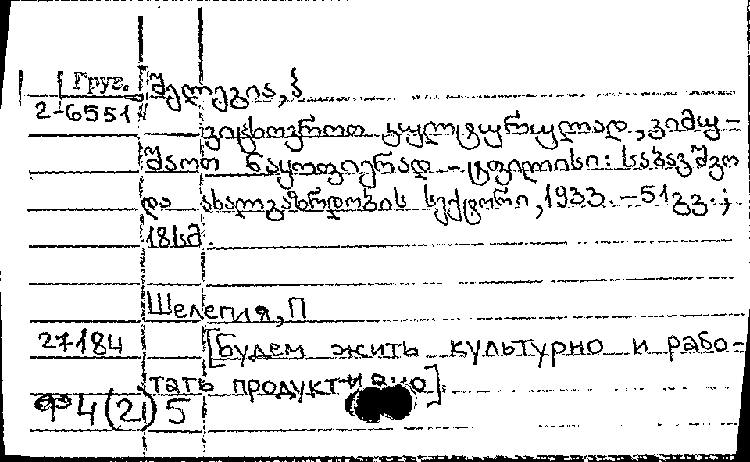 Груз. შელეგია, პ
2-6551
ვიცხოვროთ კულტურულად, ვიმუ-
შაოთ ნაყოფიერად - ტფილისი: საბავშვო
და ახალგაზრდობის სექტორი, 1933. - 51გვ.;
18სმ.
Шелегия, П
27184 [Будем жить культурно и рабо-
тать продуктивно].
4(2)5